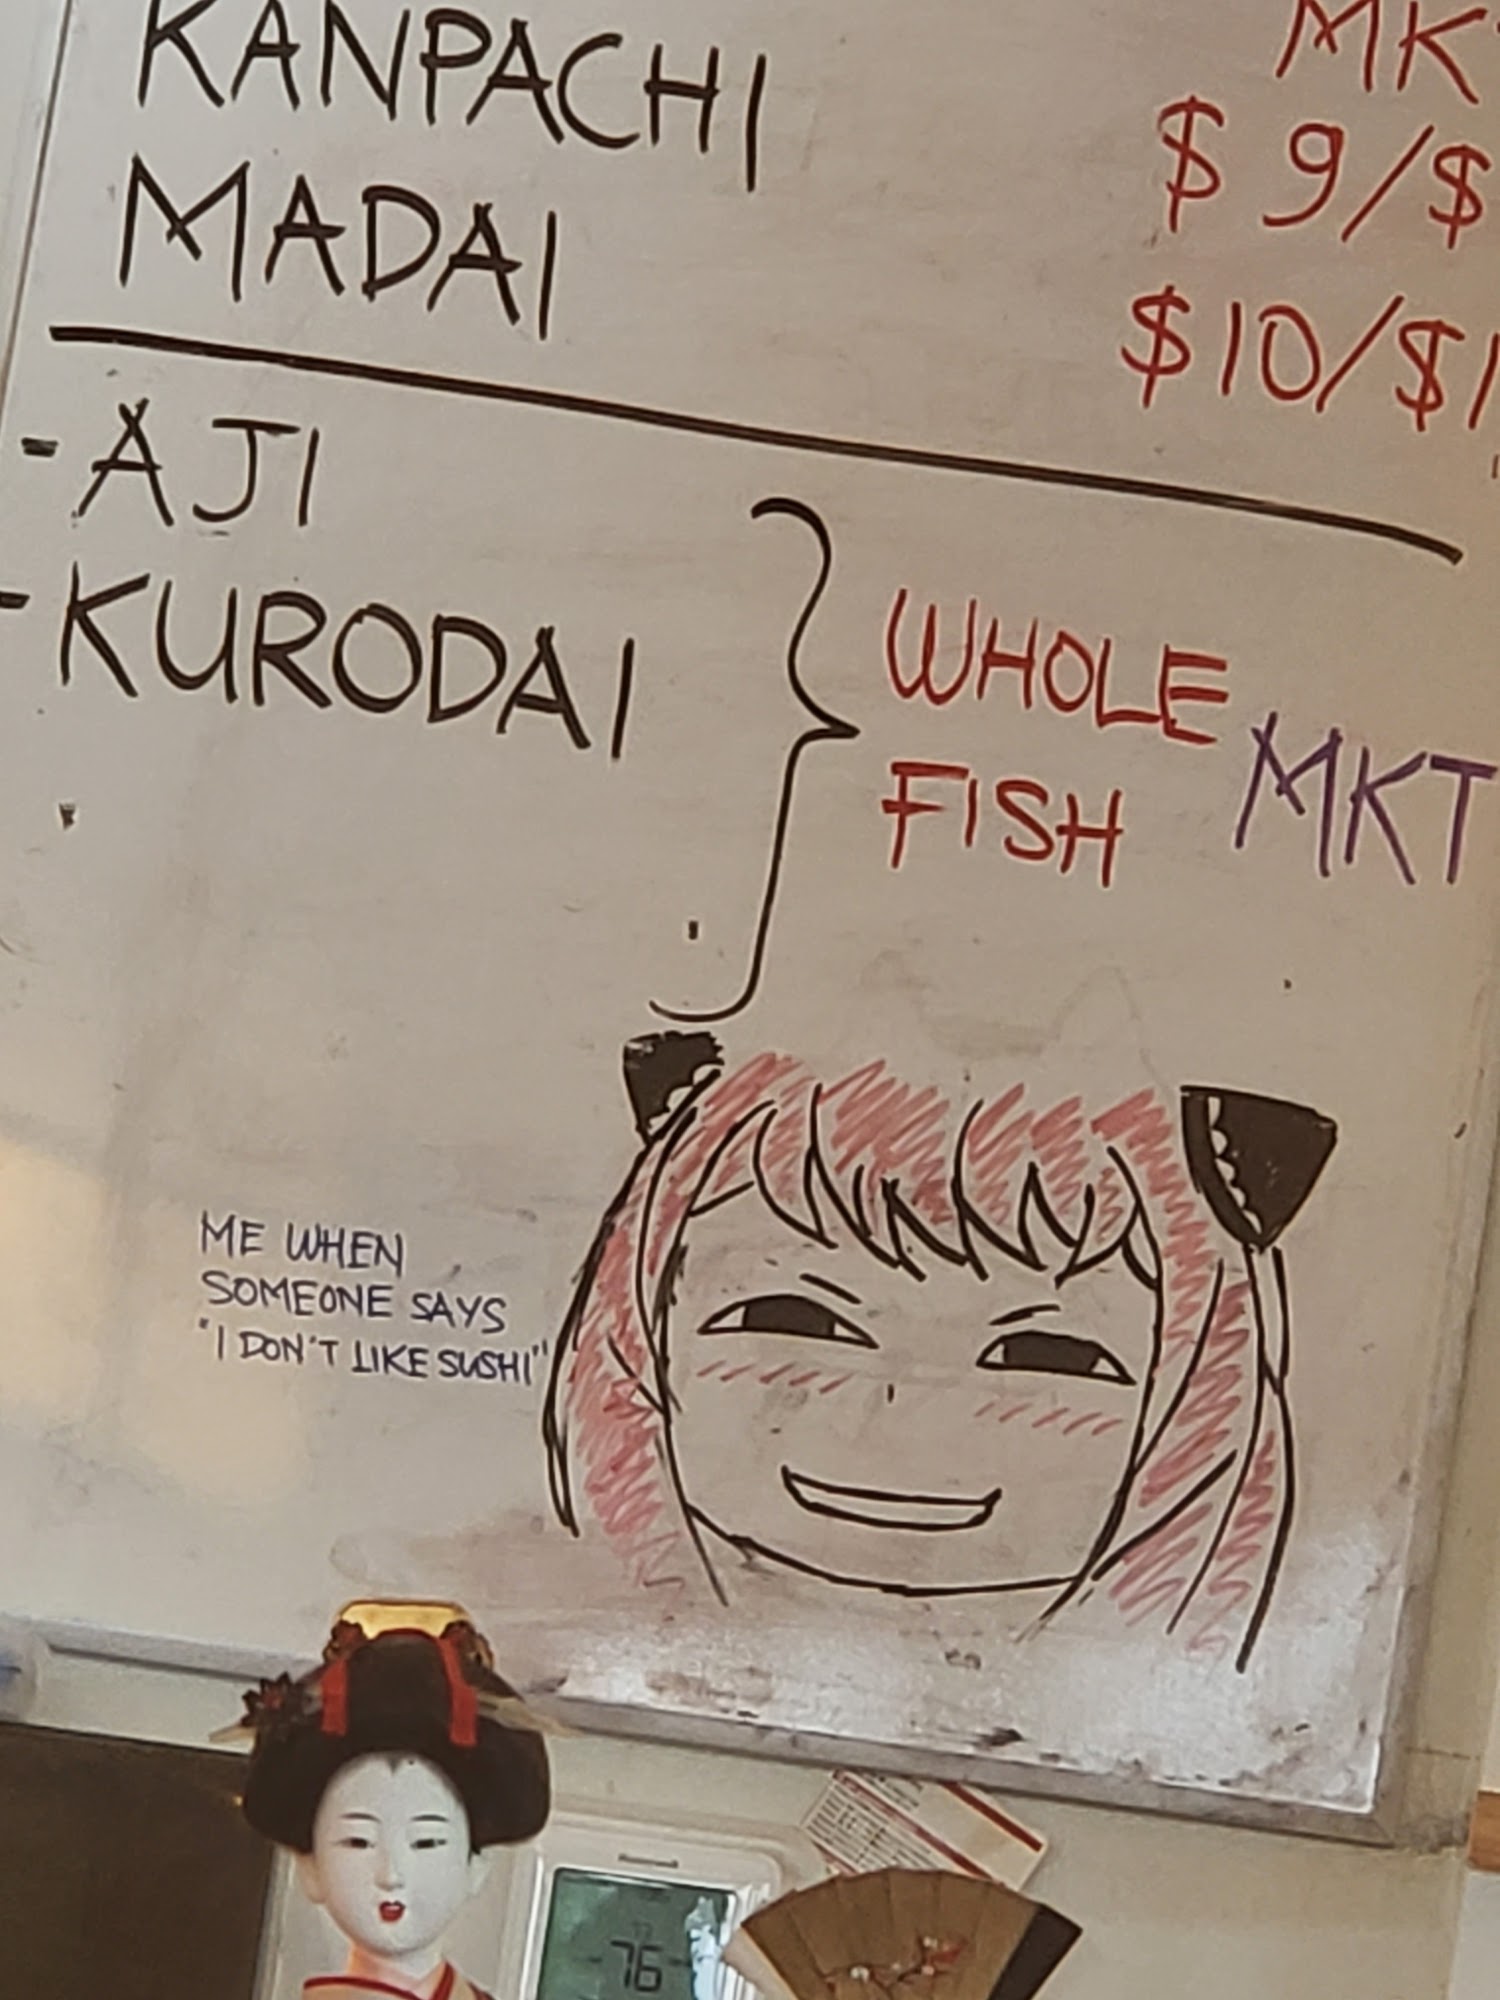 KANPACHI
MADAI
$9/$
$10/$1
- AJI
- KURODAI
WHOLE
FISH
MKT
ME WHEN
SOMEONE SAYS
"I DON'T LIKE SUSHI"
76